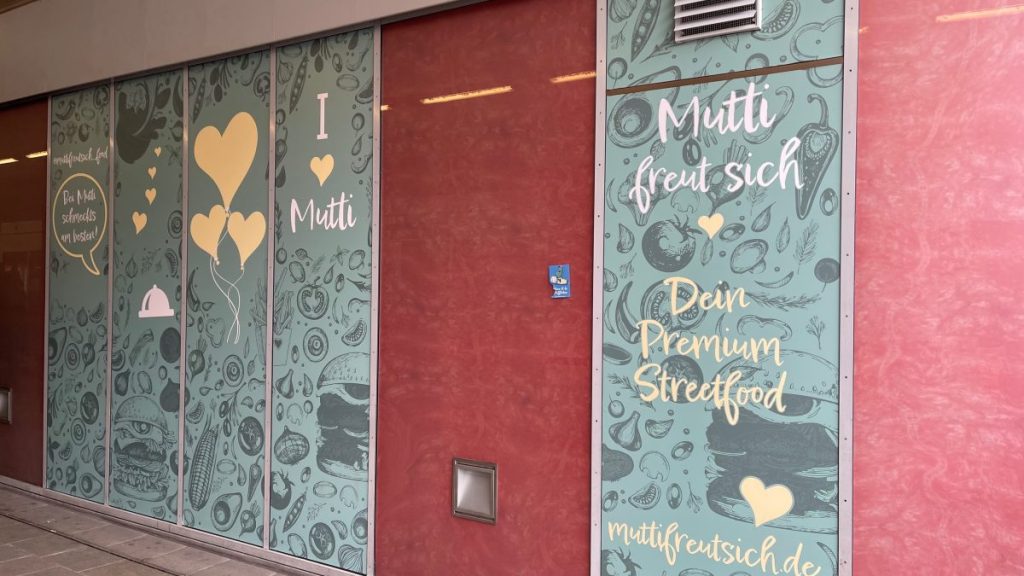 muttifreutsich_food
Bei Mutti
schmeckts
am besten!
I
Mutti
Mutti
freut sich
Dein
Premium
Streetfood
muttifreutsich.de